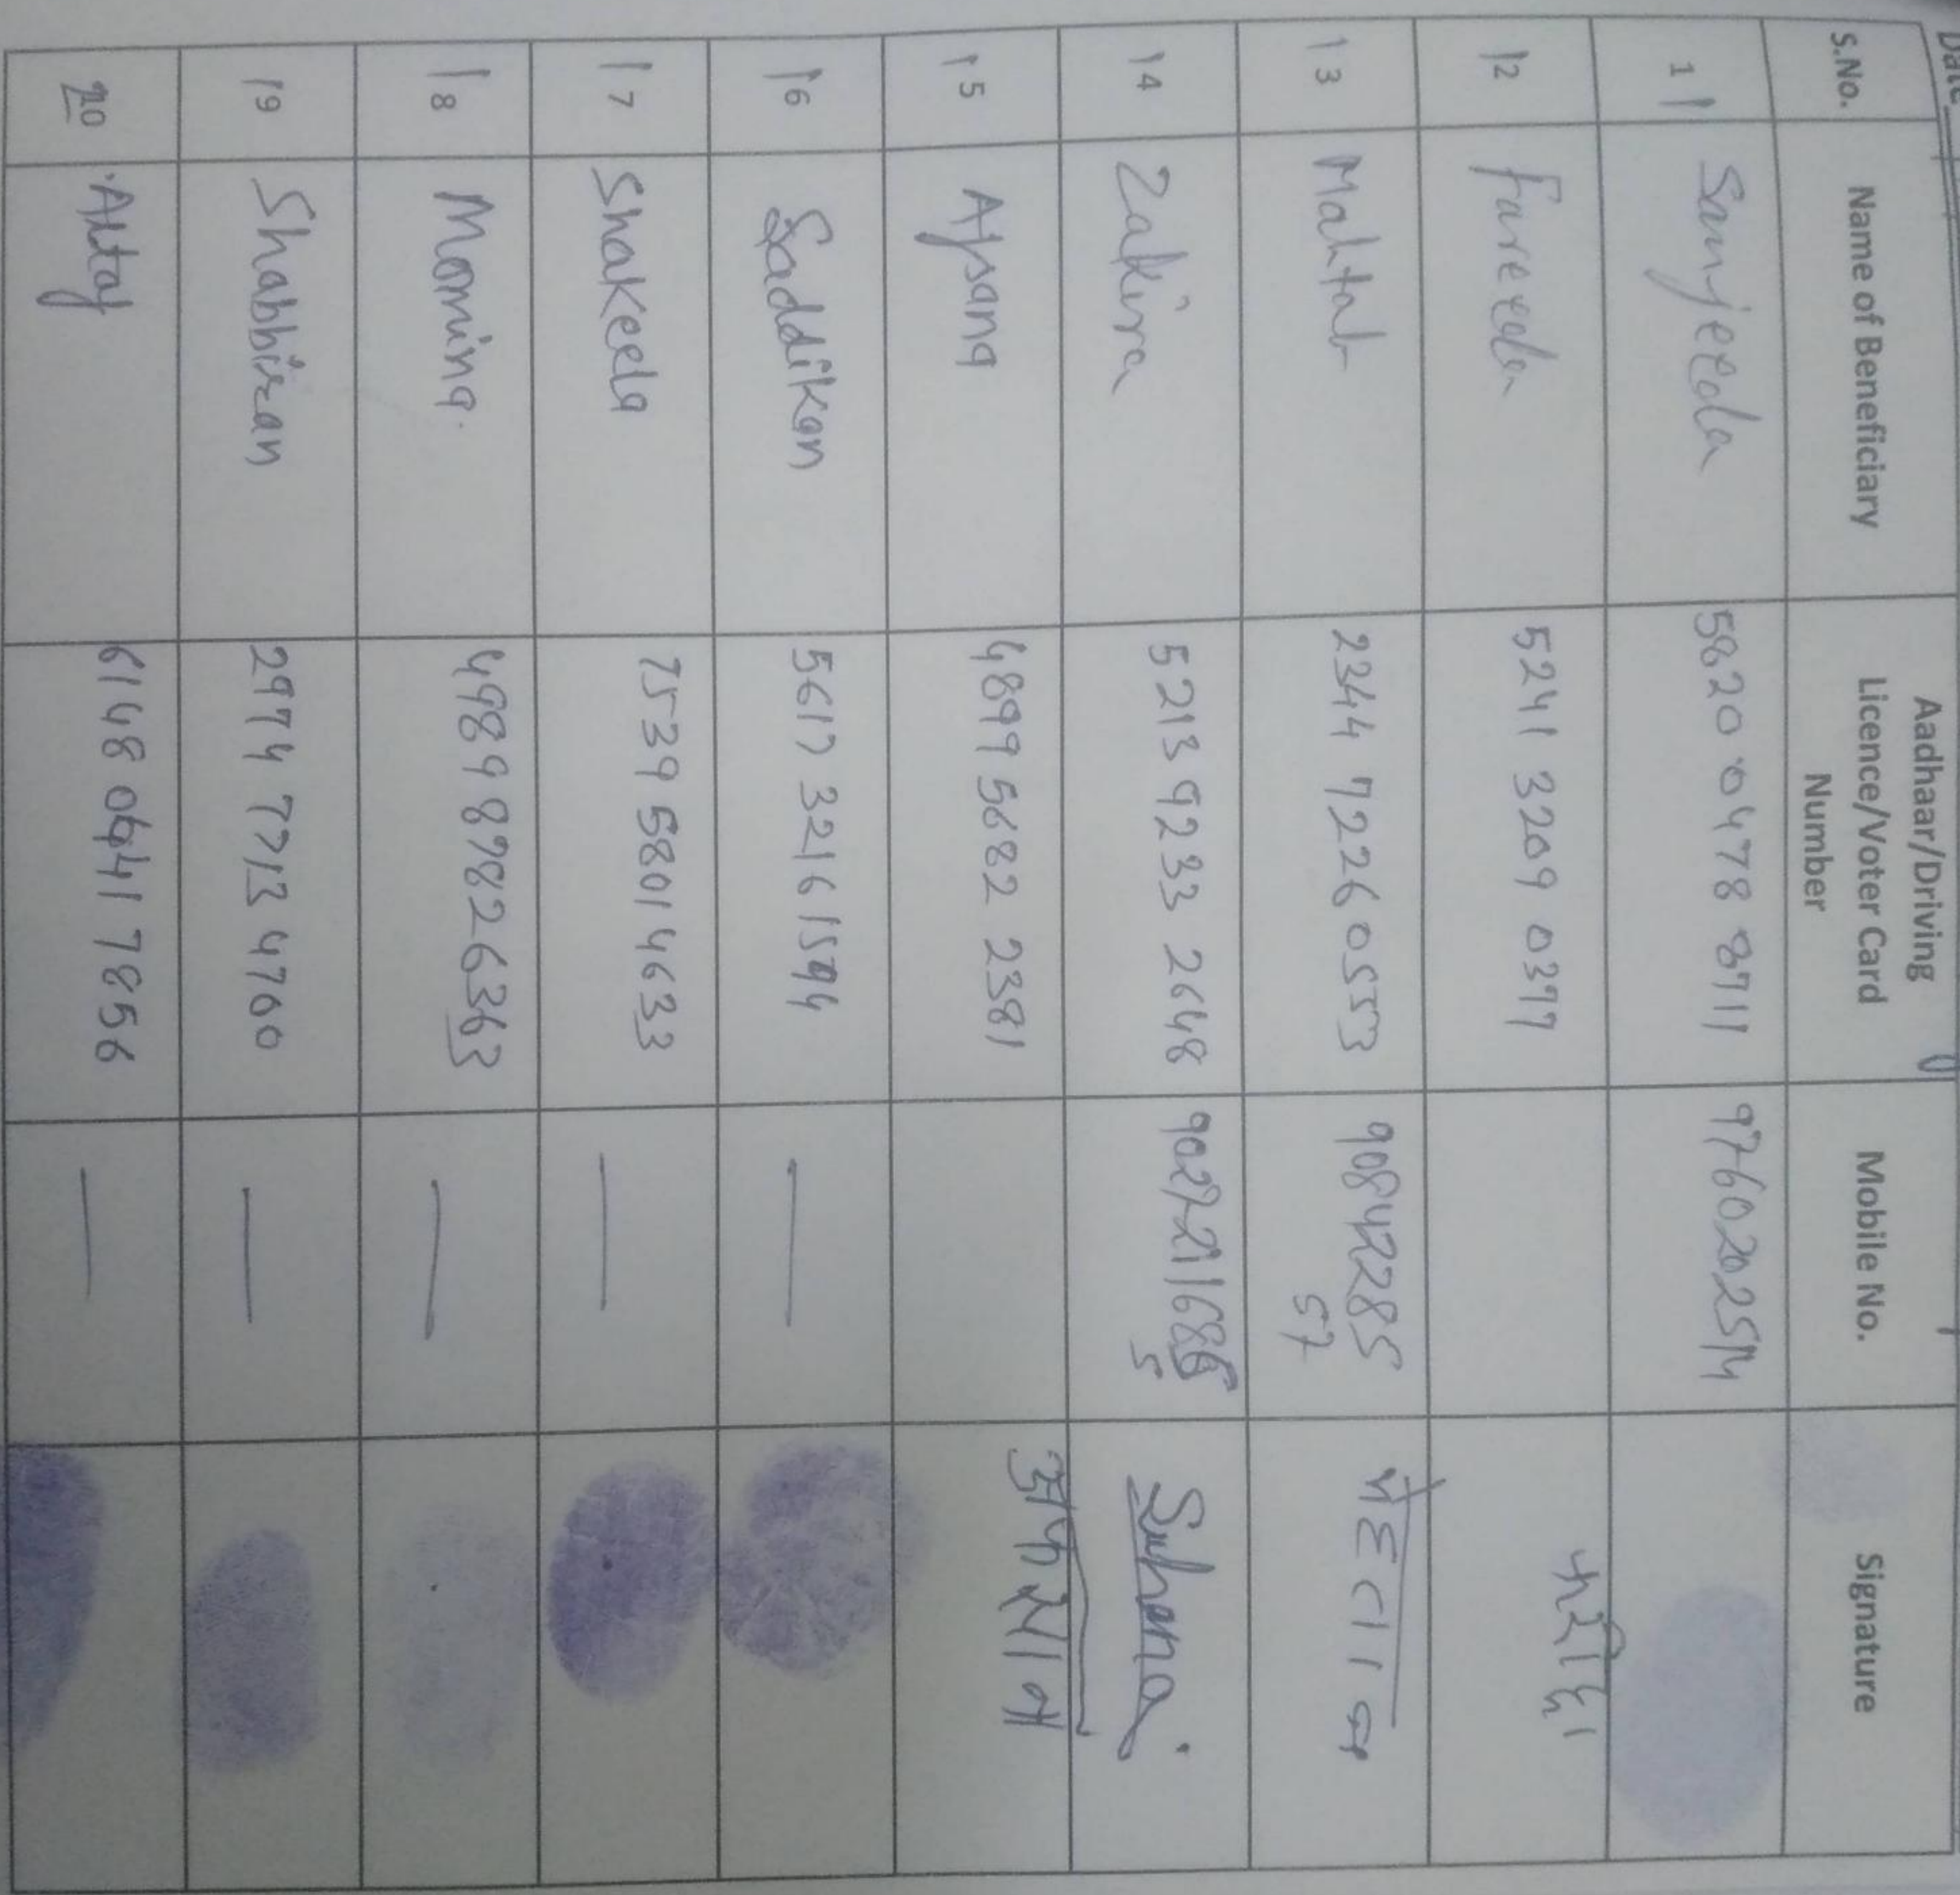 S.No. Name of Beneficiary Aadhaar/Driving Licence/Voter Card Number Mobile No. Signature
11 Sanjeeda 5820 0478 8711 9760202514
12 Fareeda 5241 3209 0377 फरीदा
13 Mahtab 2344 7226 0553 9084228557 मेहताब
14 Zakira 5213 9233 2648 Suhana
15 Afsana 4899 5682 2381 अफसाना
16 Saddikan 5617 3216 1594 —
17 Shakeela 7539 5801 4633 —
18 Momina. 4989 8782 6363 —
19 Shabbiran 2974 7713 4760 —
20 Altaf 6148 0641 7856 —